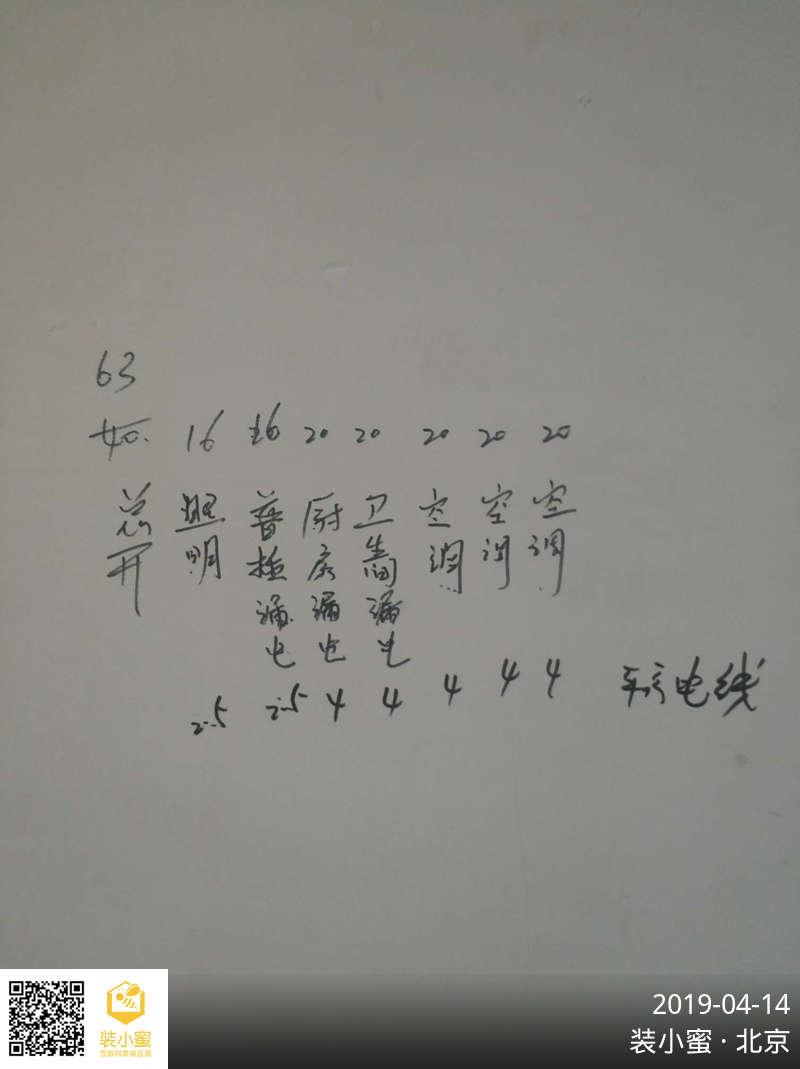 63
40. 16 16 20 20 20 20 20
总开 照明 普插漏电 厨房漏电 卫生间漏电 空调 空调 空调
2.5 2.5 4 4 4 4 4 平方电线
装小蜜
2019-04-14
装小蜜·北京